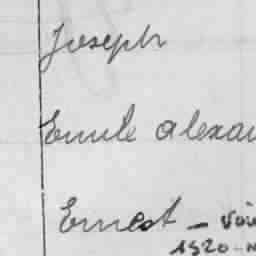 Joseph
Emile alexan
Ernest - voi
1920 - N